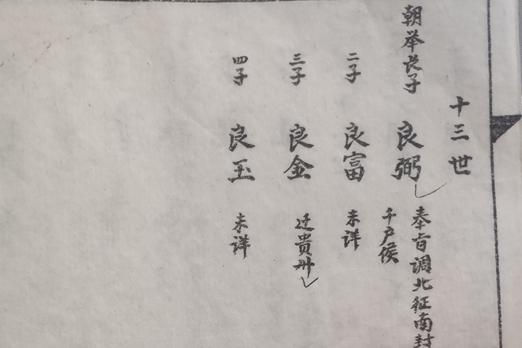 十三世
朝举长子 良弼 奉旨调北征南封
千户侯
二子 良富 未详
三子 良金 迁贵州
四子 良玉 未详